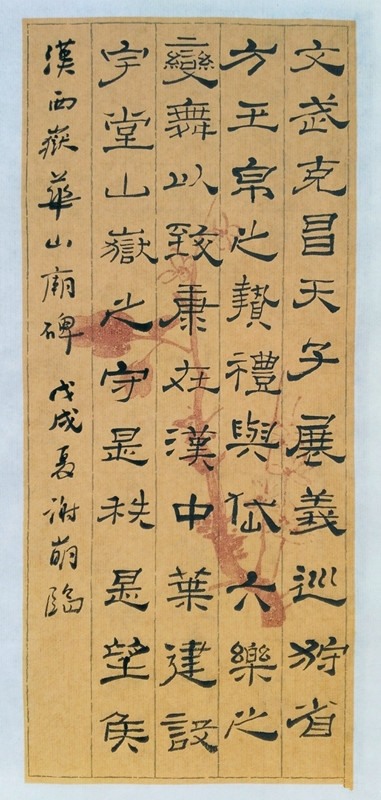 文武克昌天子展義巡狩省
方玉帛之贄禮與岱六樂之
變舞以致康在漢中葉建設
宇堂山嶽之守是秩是望侯
漢西嶽華山廟碑 戊戌夏谢萌臨